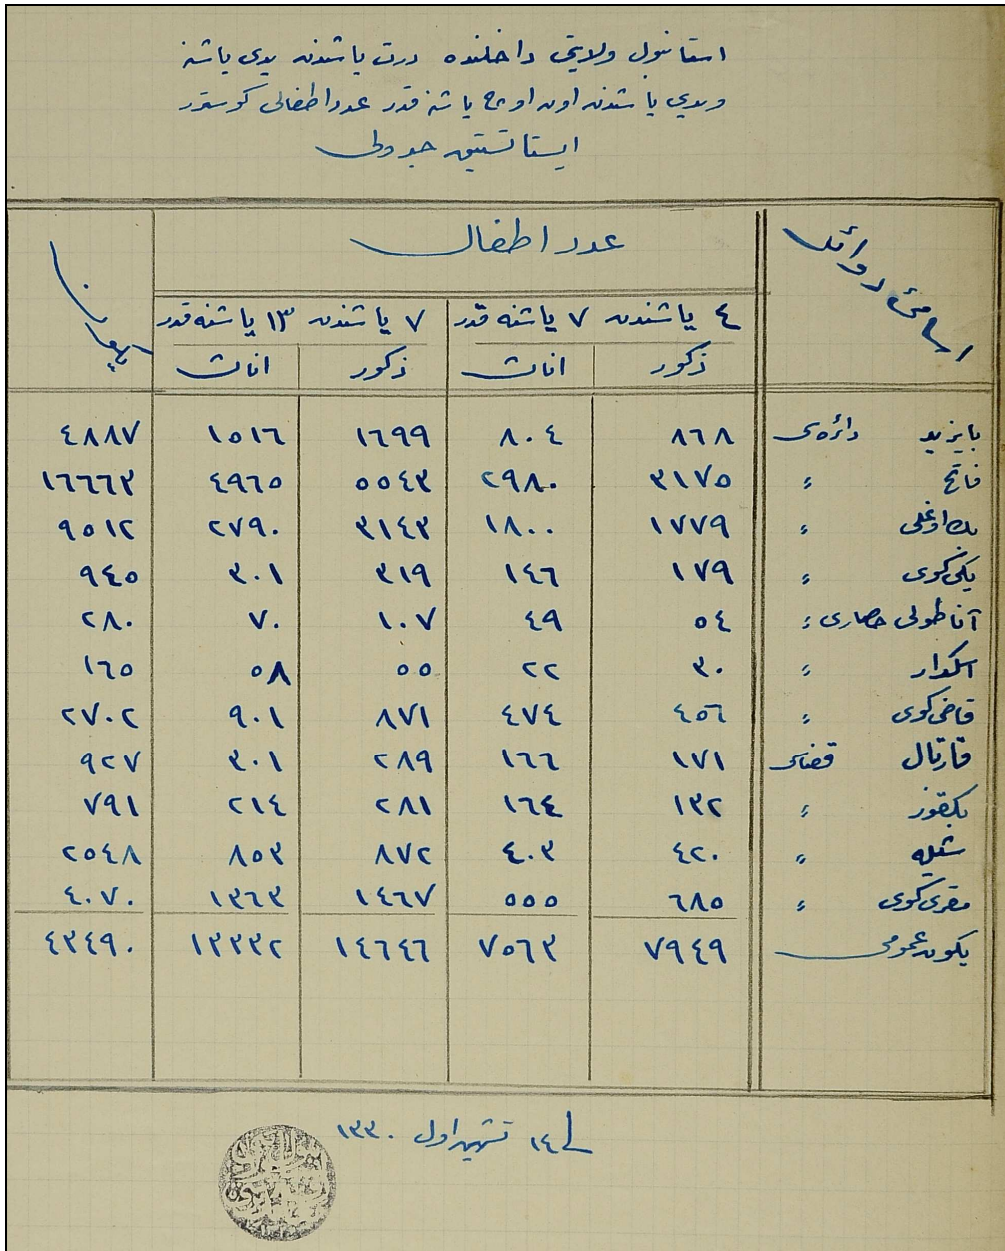 استانبول ولایتی داخلنده درت یاشندن یدی یاشنه
ویدی یاشندن اون اوچ یاشنه قدر عدد اطفالی كوستрر
ایستاتستیق جدولی
اسامئ دوائر
عدد اطفال
یكون
٤ یاشندن ٧ یاشنه قدر
٧ یاشندن ١٣ یاشنه قدر
ذكور اناث ذكور اناث
بایزید دائره‌سی ٨٦٨ ٨٠٤ ١٦٩٩ ١٥١٦ ٤٨٨٧
فاتح 〃 ٣١٧٥ ٢٩٨٠ ٥٥٤٣ ٤٩٦٥ ١٦٦٦٣
بك اوغلی 〃 ١٧٧٩ ١٨٠٠ ٣١٤٣ ٢٧٩٠ ٩٥١٢
یكی كوی 〃 ١٧٩ ١٤٦ ٣١٩ ٣٠١ ٩٤٥
آناطولی حصاری 〃 ٥٤ ٤٩ ١٠٧ ٧٠ ٢٨٠
اسكدار 〃 ٣٠ ٢٢ ٥٥ ٥٨ ١٦٥
قاضی كوی 〃 ٤٥٦ ٤٧٤ ٨٧١ ٩٠١ ٢٧٠٢
قارتال قضاسی ١٧١ ١٦٦ ٢٨٩ ٣٠١ ٩٢٧
بكقوز 〃 ١٣٢ ١٦٤ ٢٨١ ٢١٤ ٧٩١
شیله 〃 ٤٢٠ ٤٠٣ ٨٧٢ ٨٥٣ ٢٥٤٨
مقری كوی 〃 ٦٨٥ ٥٥٥ ١٤٦٧ ١٣٦٣ ٤٠٧٠
یكون عمومی ٧٩٤٩ ٧٥٦٣ ١٤٦٤٦ ١٣٣٣٢ ٤٣٤٩٠
فی ١٤ تشرین اول ١٣٣٠